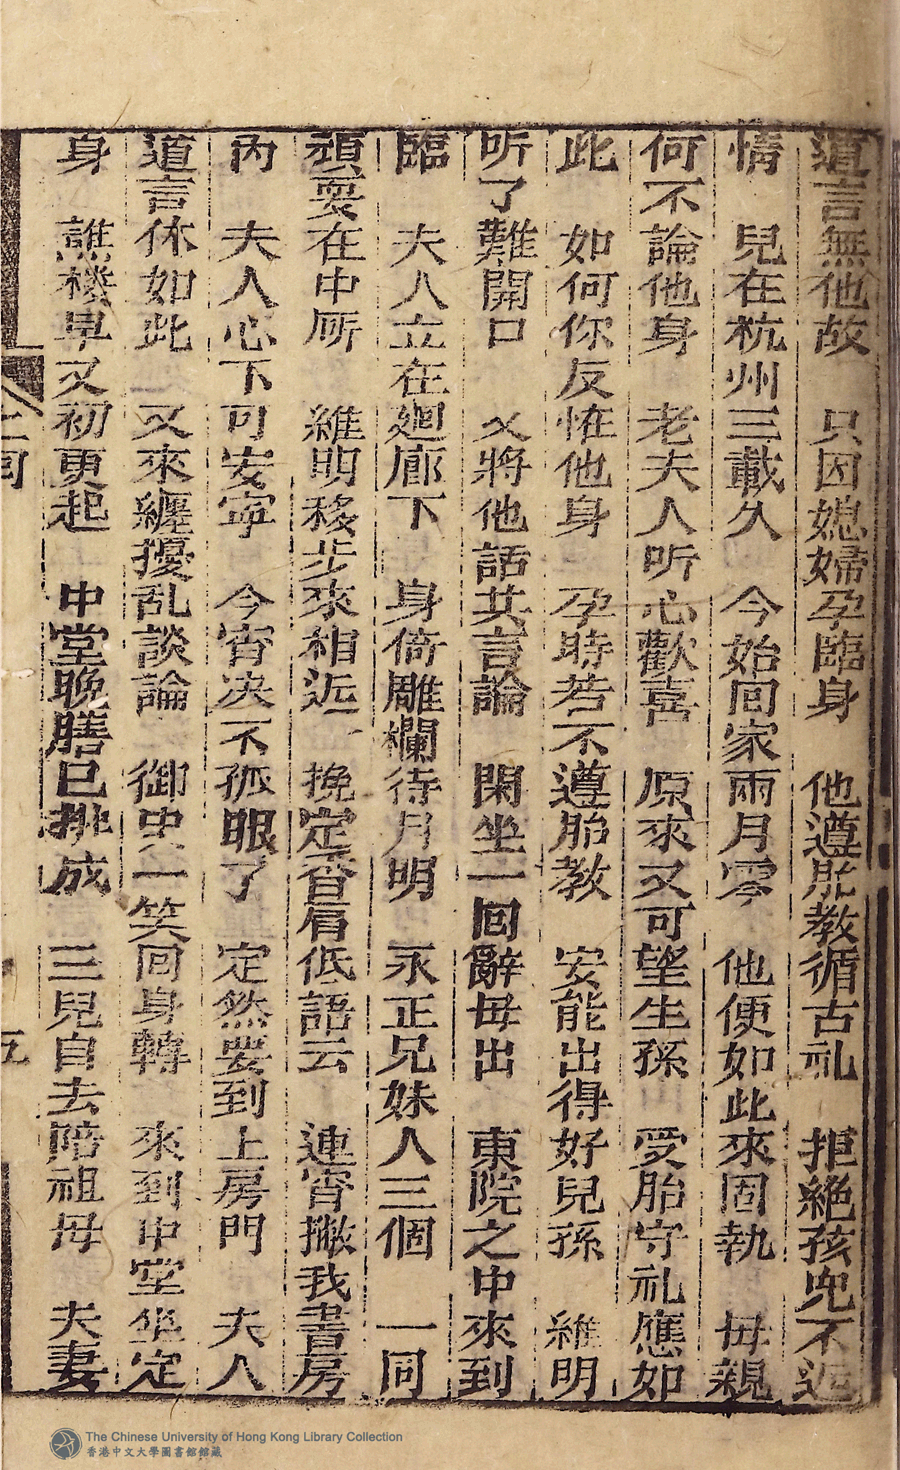 道言無他故　只因媳婦孕臨身　他遵胎教循古礼　拒絶孩児不近
情　兒在杭州三載久　今始囘家兩月零　他便如此來固執　毋親
何不論他身　老夫人听心歡喜　原來又可望生孫　受胎守礼應如
此　如何你反恠他身　孕時若不遵胎教　安能出得好兒孫　維明
听了難開口　又將他話共言論　閑坐一囘辭毋出　東院之中來到
臨　夫人立在廻廊下　身倚雕欄待月明　永正兄妹人三個　一同
頑耍在中𠩄　維明移步來相近　挽定香肩低語云　連宵撇我書房
內　夫人心下可安寧　今宵决不孤眠了　定然要到上房門　夫人
道言休如此　又來纏擾乱談論　御史一笑囘身轉　來到中堂坐定
身　譙楼早又初更起　中堂晚膳已排成　三兒自去陪祖毋　夫妻
五
The Chinese University of Hong Kong Library Collection
香港中文大學圖書館館藏